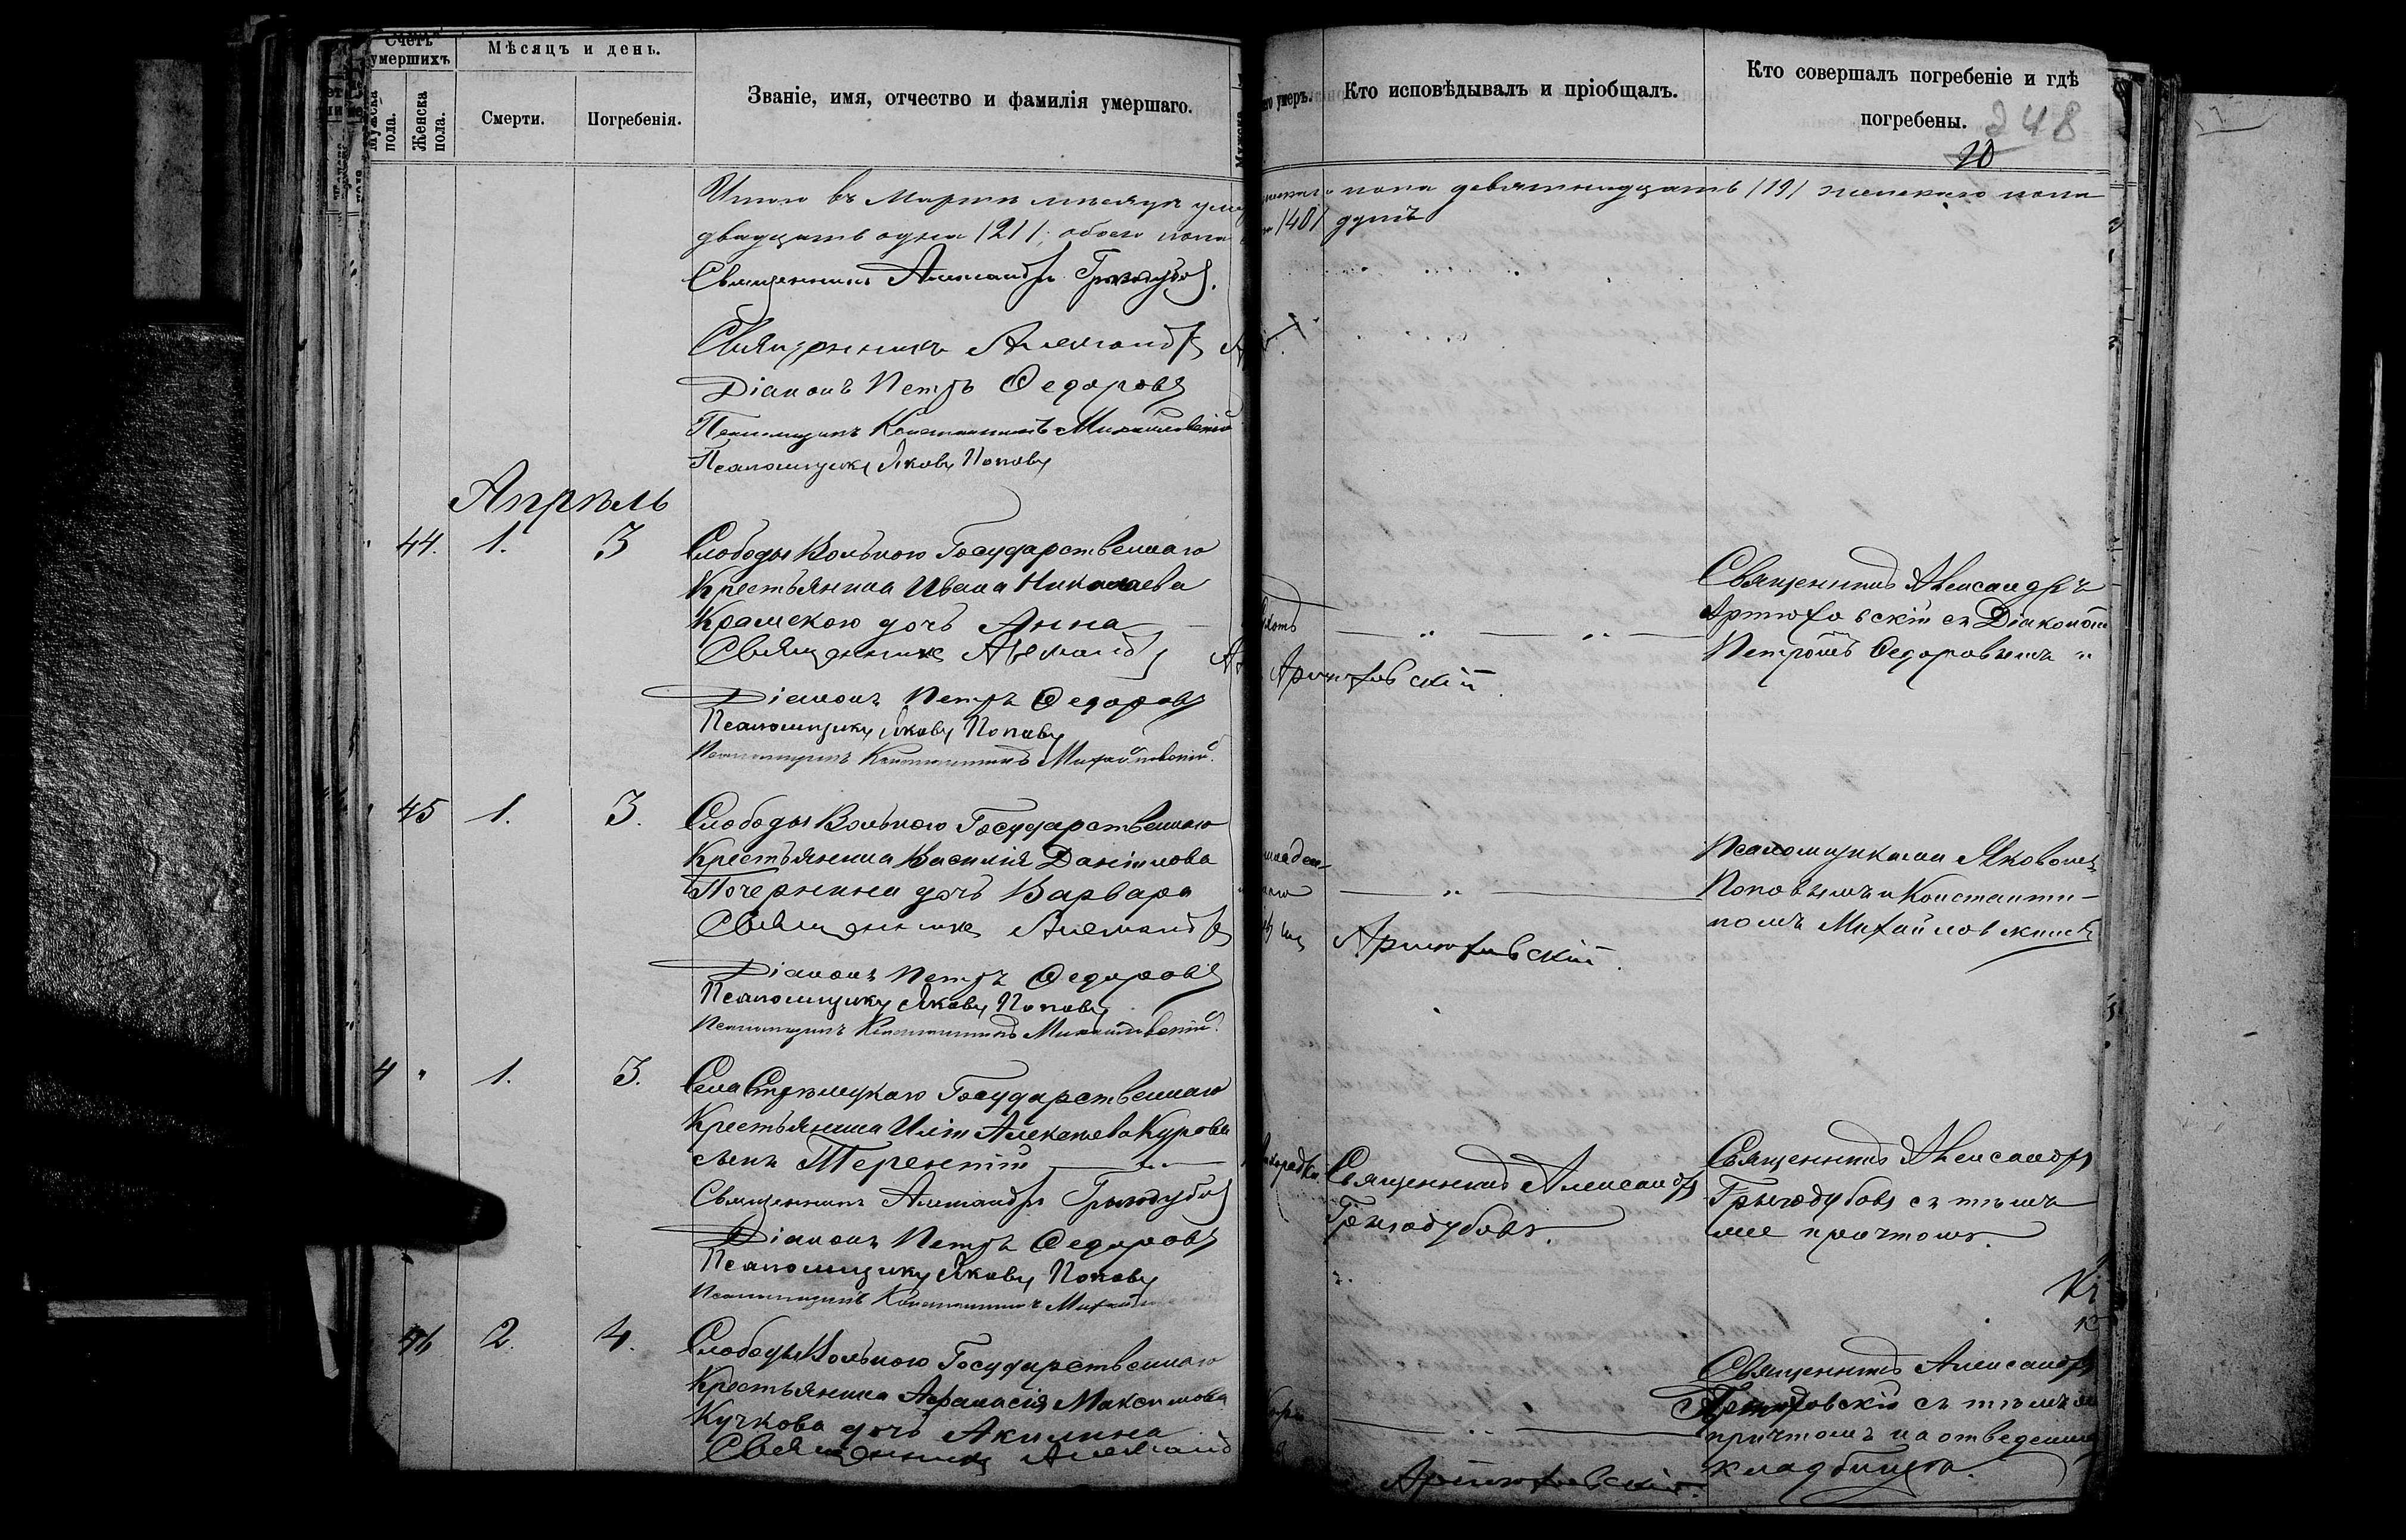 Счетъ умершихъ
Мужска пола.
Женска пола.
Мѣсяцъ и день.
Смерти.
Погребенія.
Званіе, имя, отчество и фамилія умершаго.
Итого въ Мартѣ мѣсяцѣ
двадцать одна /21/, обоего пола
Священникъ Александръ Грызодубовъ.
Священникъ Александръ
Діаконъ Петръ Ѳедоровъ
Псаломщикъ Константинъ Михайловскій
Псаломщикъ Яковъ Поповъ
Апрѣль
44. 1. 3 Слободы Вольного Государственнаго
Крестьянина Ивана Николаева
Крамскою дочь Анна
Священникъ Александръ
Діаконъ Петръ Ѳедоровъ
Псаломщикъ Яковъ Поповъ
Псаломщикъ Константинъ Михайловскій.
45 1. 3. Слободы Вольного Государственнаго
Крестьянина Василія Данілова
дочь Варвара
Священникъ Александръ
Діаконъ Петръ Ѳедоровъ
Псаломщикъ Яковъ Поповъ
Псаломщикъ Константинъ Михайловскій.
4 " 1. 3. Села Стрѣлецкаго Государственнаго
Крестьянина Иліи Алексѣева Курова
сынъ Терентій
Священникъ Александръ Грызодубовъ
Діаконъ Петръ Ѳедоровъ
Псаломщикъ Яковъ Поповъ
Псаломщикъ Константинъ
46 2. 4. Слободы Вольного Государственнаго
Крестьянина Афанасія Максимова
Кучкова дочь Акилина
Священникъ Александръ
умеръ.
Кто исповѣдывалъ и пріобщалъ.
Кто совершалъ погребеніе и гдѣ
погребены.
248
20
пола девятнадцать /19/ женскаго пола
/40/ душъ
Священникъ Александръ
Артюховскій съ Діакономъ
Петромъ Ѳедоровымъ "
Артюховскій.
Псаломщиками Яковомъ
Поповымъ и Константи-
номъ Михайловскимъ
Артюховскій.
Священникъ Александръ
Грызодубовъ.
Священникъ Александръ
Грызодубовъ съ тѣмъ
же причтомъ.
Священникъ Александръ
Артюховскій съ тѣмъ же
причтомъ на отведенномъ
кладбищѣ.
Артюховскій.